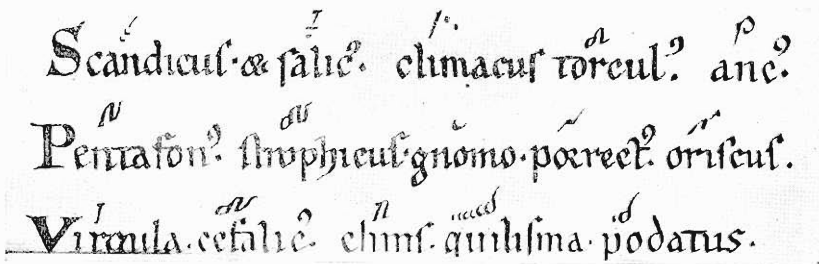 Scandicus · & salic⁹. climacus torcul⁹. anc⁹.
Pentafon⁹. strophicus · gnomo · porrect⁹. oriscus.
Virgula · cefalic⁹. clinis. quilisma · podatus.